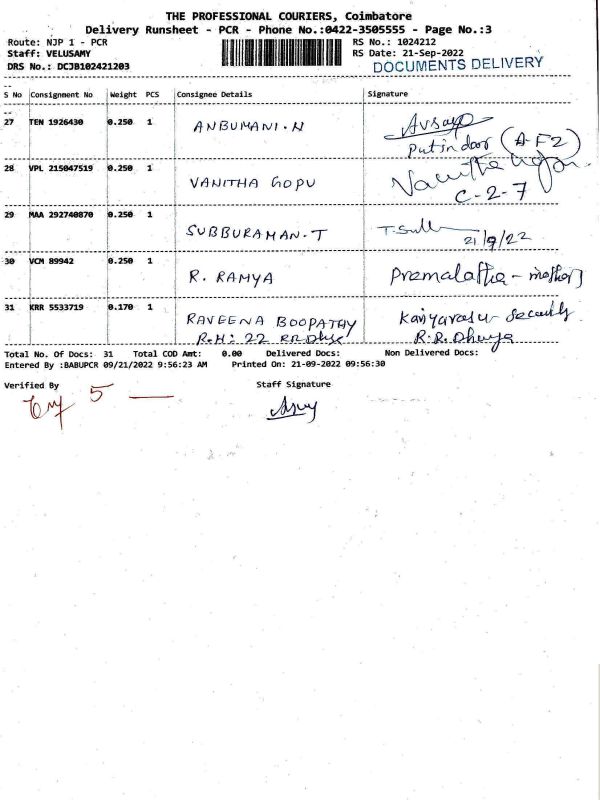 THE PROFESSIONAL COURIERS, Coimbatore
Delivery Runsheet - PCR - Phone No.:0422-3505555 - Page No.:3
Route: NJP 1 - PCR RS No.: 1024212
Staff: VELUSAMY RS Date: 21-Sep-2022
DRS No.: DCJB102421203 DOCUMENTS DELIVERY
S No Consignment No Weight PCS Consignee Details Signature
27 TEN 1926430 0.250 1 ANBUMANI.N
Put in door (A-F2)
28 VPL 215047519 0.250 1 VANITHA GOPU Vanitha
C-2-7
29 MAA 292740870 0.250 1 SUBBURAMAN.T
21/9/22
30 VCM 89942 0.250 1 R. RAMYA Premalatha - mother
31 KRR 5533719 0.170 1 RAVEENA BOOPATHY Security
R.H: 22 RR R.R.
Total No. Of Docs: 31 Total COD Amt: 0.00 Delivered Docs: Non Delivered Docs:
Entered By :BABUPCR 09/21/2022 9:56:23 AM Printed On: 21-09-2022 09:56:30
Verified By Staff Signature
5